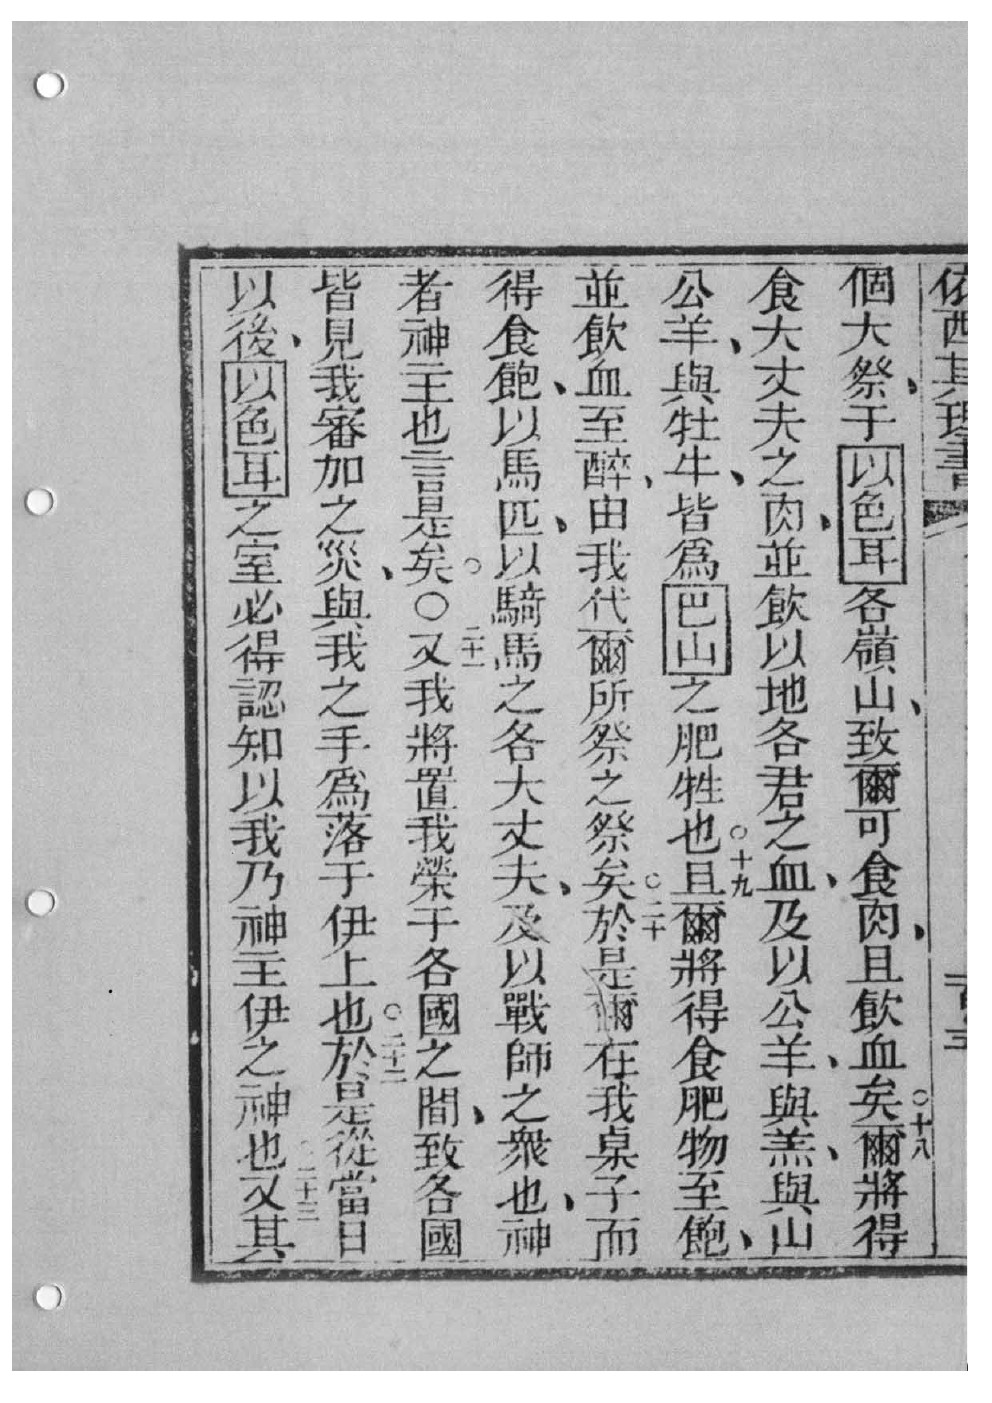 依西其理書
個大祭、于以色耳各嶺山、致爾可食肉、且飲血矣。十八爾將得
食大丈夫之肉、並飲以地各君之血、及以公羊、與羔、與山
公羊、與牡牛、皆爲巴山之肥牲也。十九且爾將得食肥物至飽、
並飲血至醉、由我代爾所祭之祭矣。二十於是爾在我桌子而
得食飽、以馬匹、以騎馬之各大丈夫、及以戰師之衆也、神
者神主也言是矣。〇二十一又我將置我榮于各國之間、致各國
皆見我審加之災、與我之手爲落于伊上也。二十二於是從當日
以後、以色耳之室必得認知以我乃神主伊之神也。二十三又其